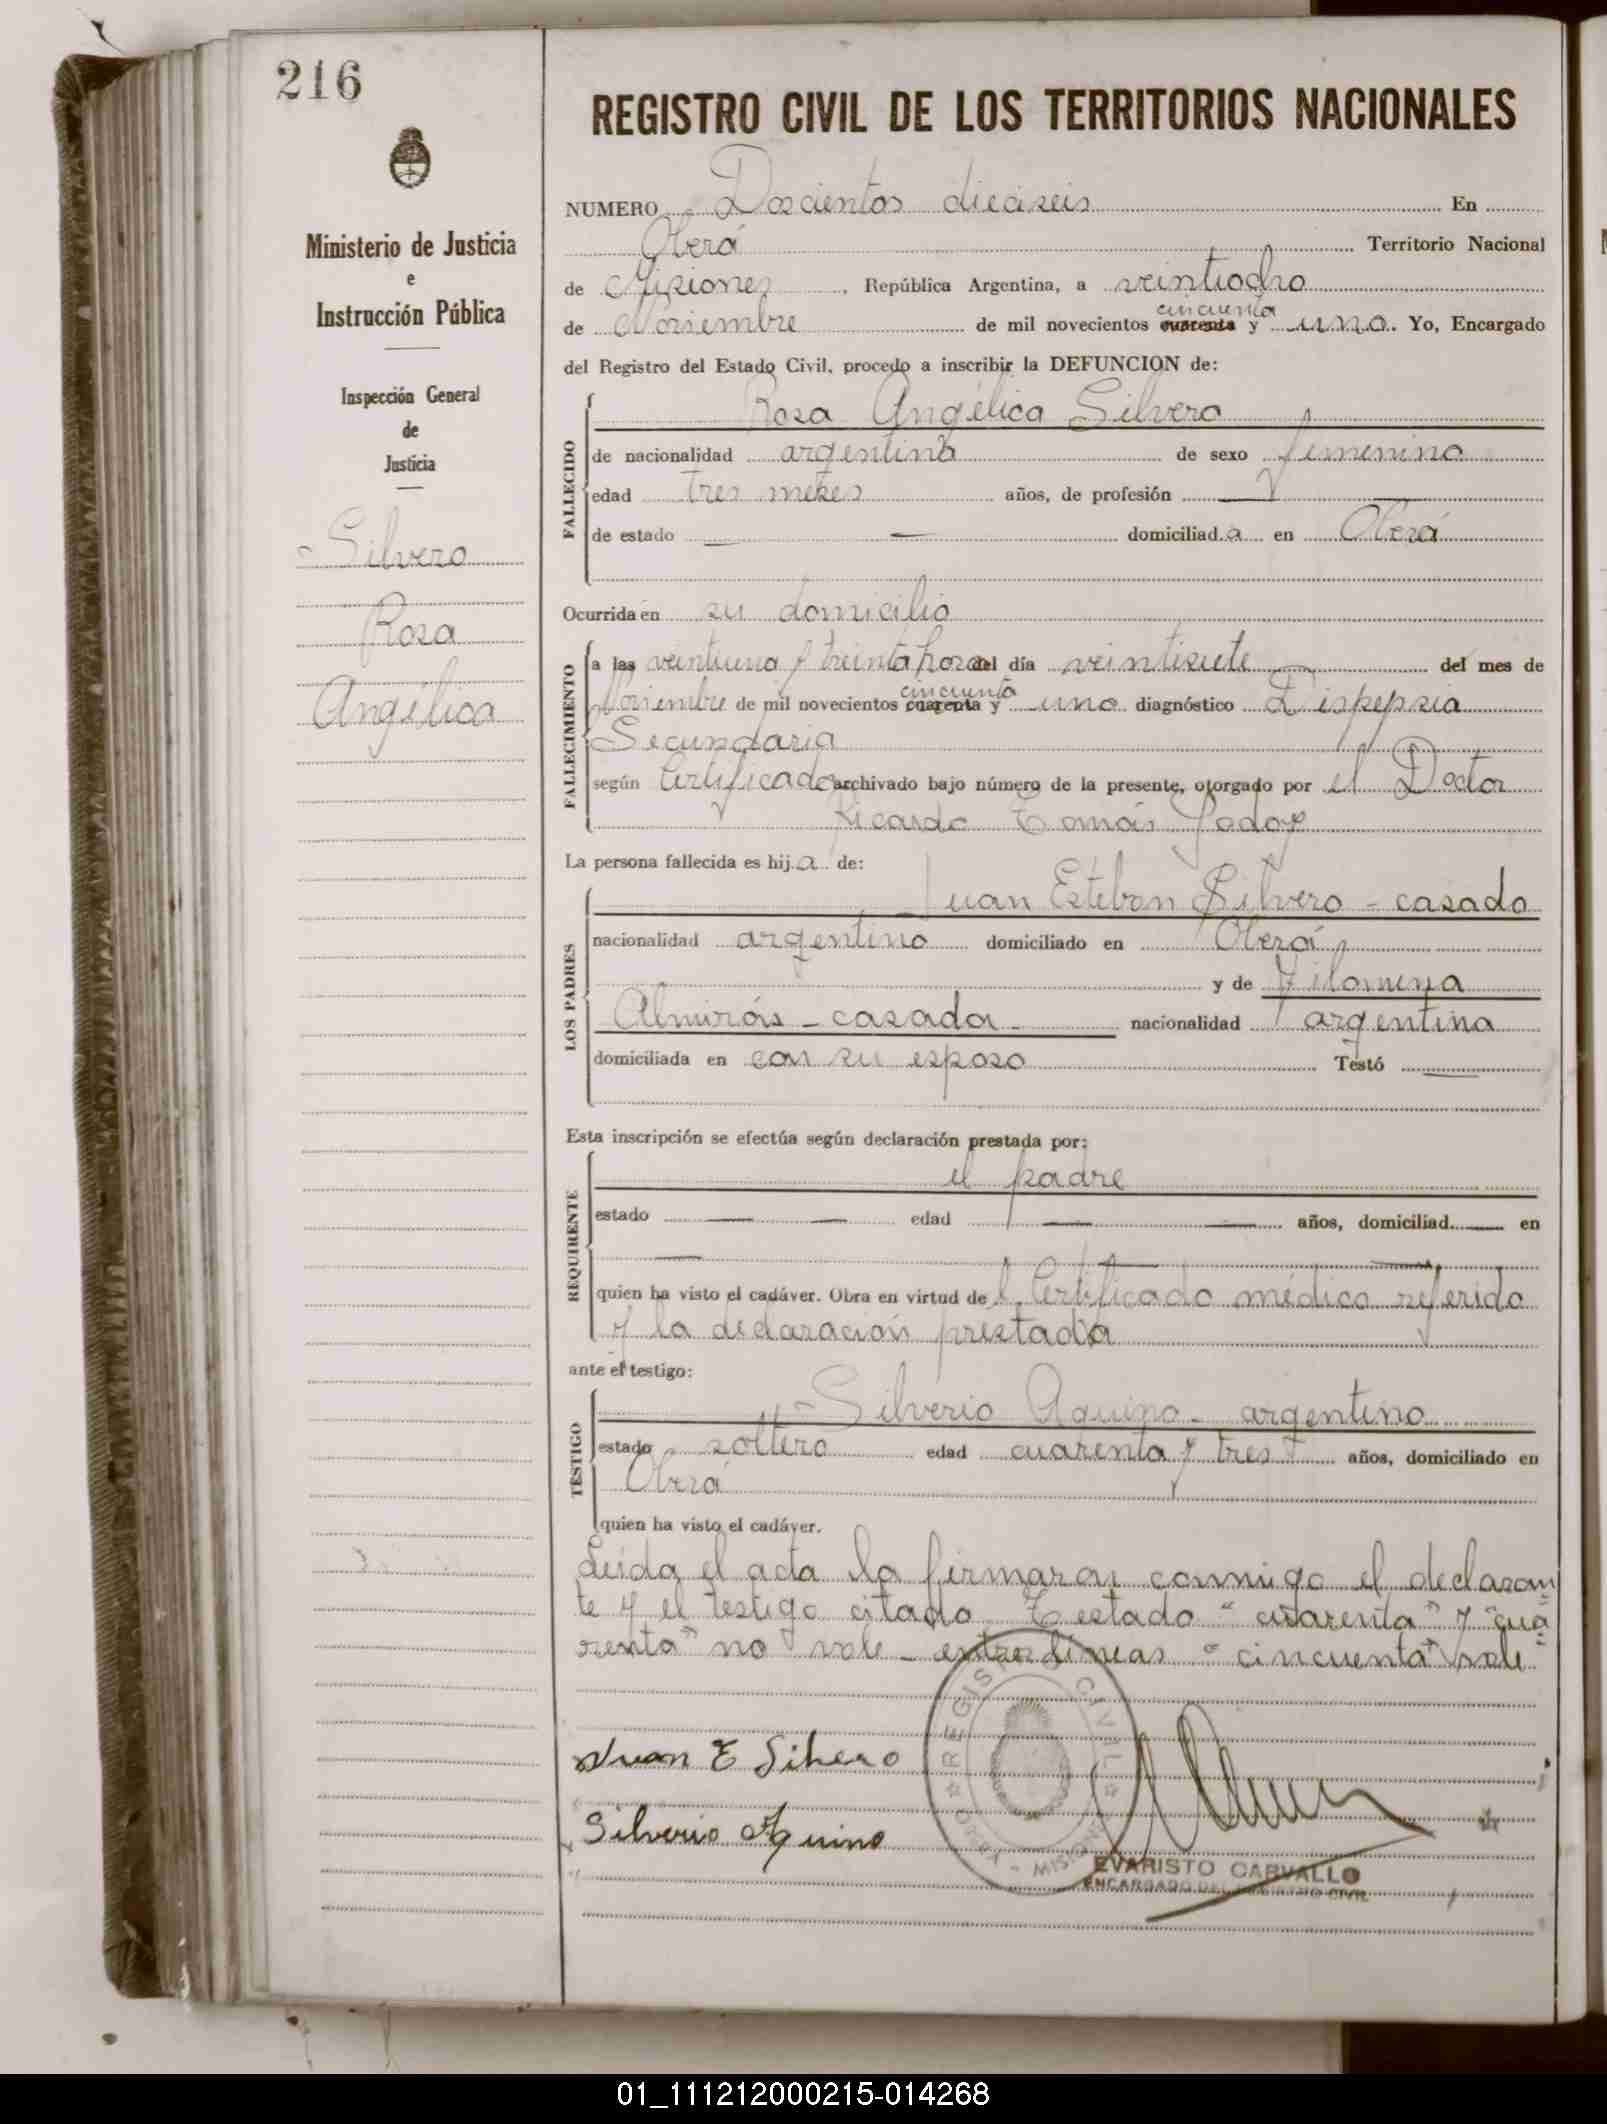 216
Ministerio de Justicia
e
Instrucción Pública
Inspección General
de
Justicia
Silvero
Rosa
Angélica
REGISTRO CIVIL DE LOS TERRITORIOS NACIONALES
NUMERO Doscientos dieciseis En
Oberá Territorio Nacional
de Misiones, República Argentina, a veintiocho
cincuenta
de Noviembre de mil novecientos cuarenta y uno. Yo, Encargado
del Registro del Estado Civil, procedo a inscribir la DEFUNCION de:
FALLECIDO
Rosa Angélica Silvero
de nacionalidad argentina de sexo femenino
edad tres meses años, de profesión —
de estado — — domiciliad a en Oberá
Ocurrida en su domicilio
FALLECIMIENTO
a las veintiuna y treinta horas del día veintisiete del mes de
cincuenta
Noviembre de mil novecientos cuarenta y uno diagnóstico Dispepsia
Secundaria
según Certificado archivado bajo número de la presente, otorgado por el Doctor
Ricardo Tomás Godoy
La persona fallecida es hij a de:
LOS PADRES
Juan Esteban Silvero - casado
nacionalidad argentino domiciliado en Oberá
y de Filomena
Almirón - casada - nacionalidad argentina
domiciliada en con su esposo Testó —
Esta inscripción se efectúa según declaración prestada por:
REQUIRENTE
el padre
estado — — edad — — años, domiciliad — en
quien ha visto el cadáver. Obra en virtud de l Certificado médico referido
y la declaración prestada
ante el testigo:
TESTIGO
Silverio Aquino - argentino
estado soltero edad cuarenta y tres años, domiciliado en
Oberá
quien ha visto el cadáver.
Leida el acta la firmaron conmigo el declaran
te y el testigo citado. Testado "cuarenta" y "cua
renta" no vale - entre lineas "cincuenta" vale
Juan E Silvero
Silverio Aquino
REGISTRO CIVIL
OBERA - MISIONES
EVARISTO CARVALLO
ENCARGADO DEL REGISTRO CIVIL
01_111212000215-014268